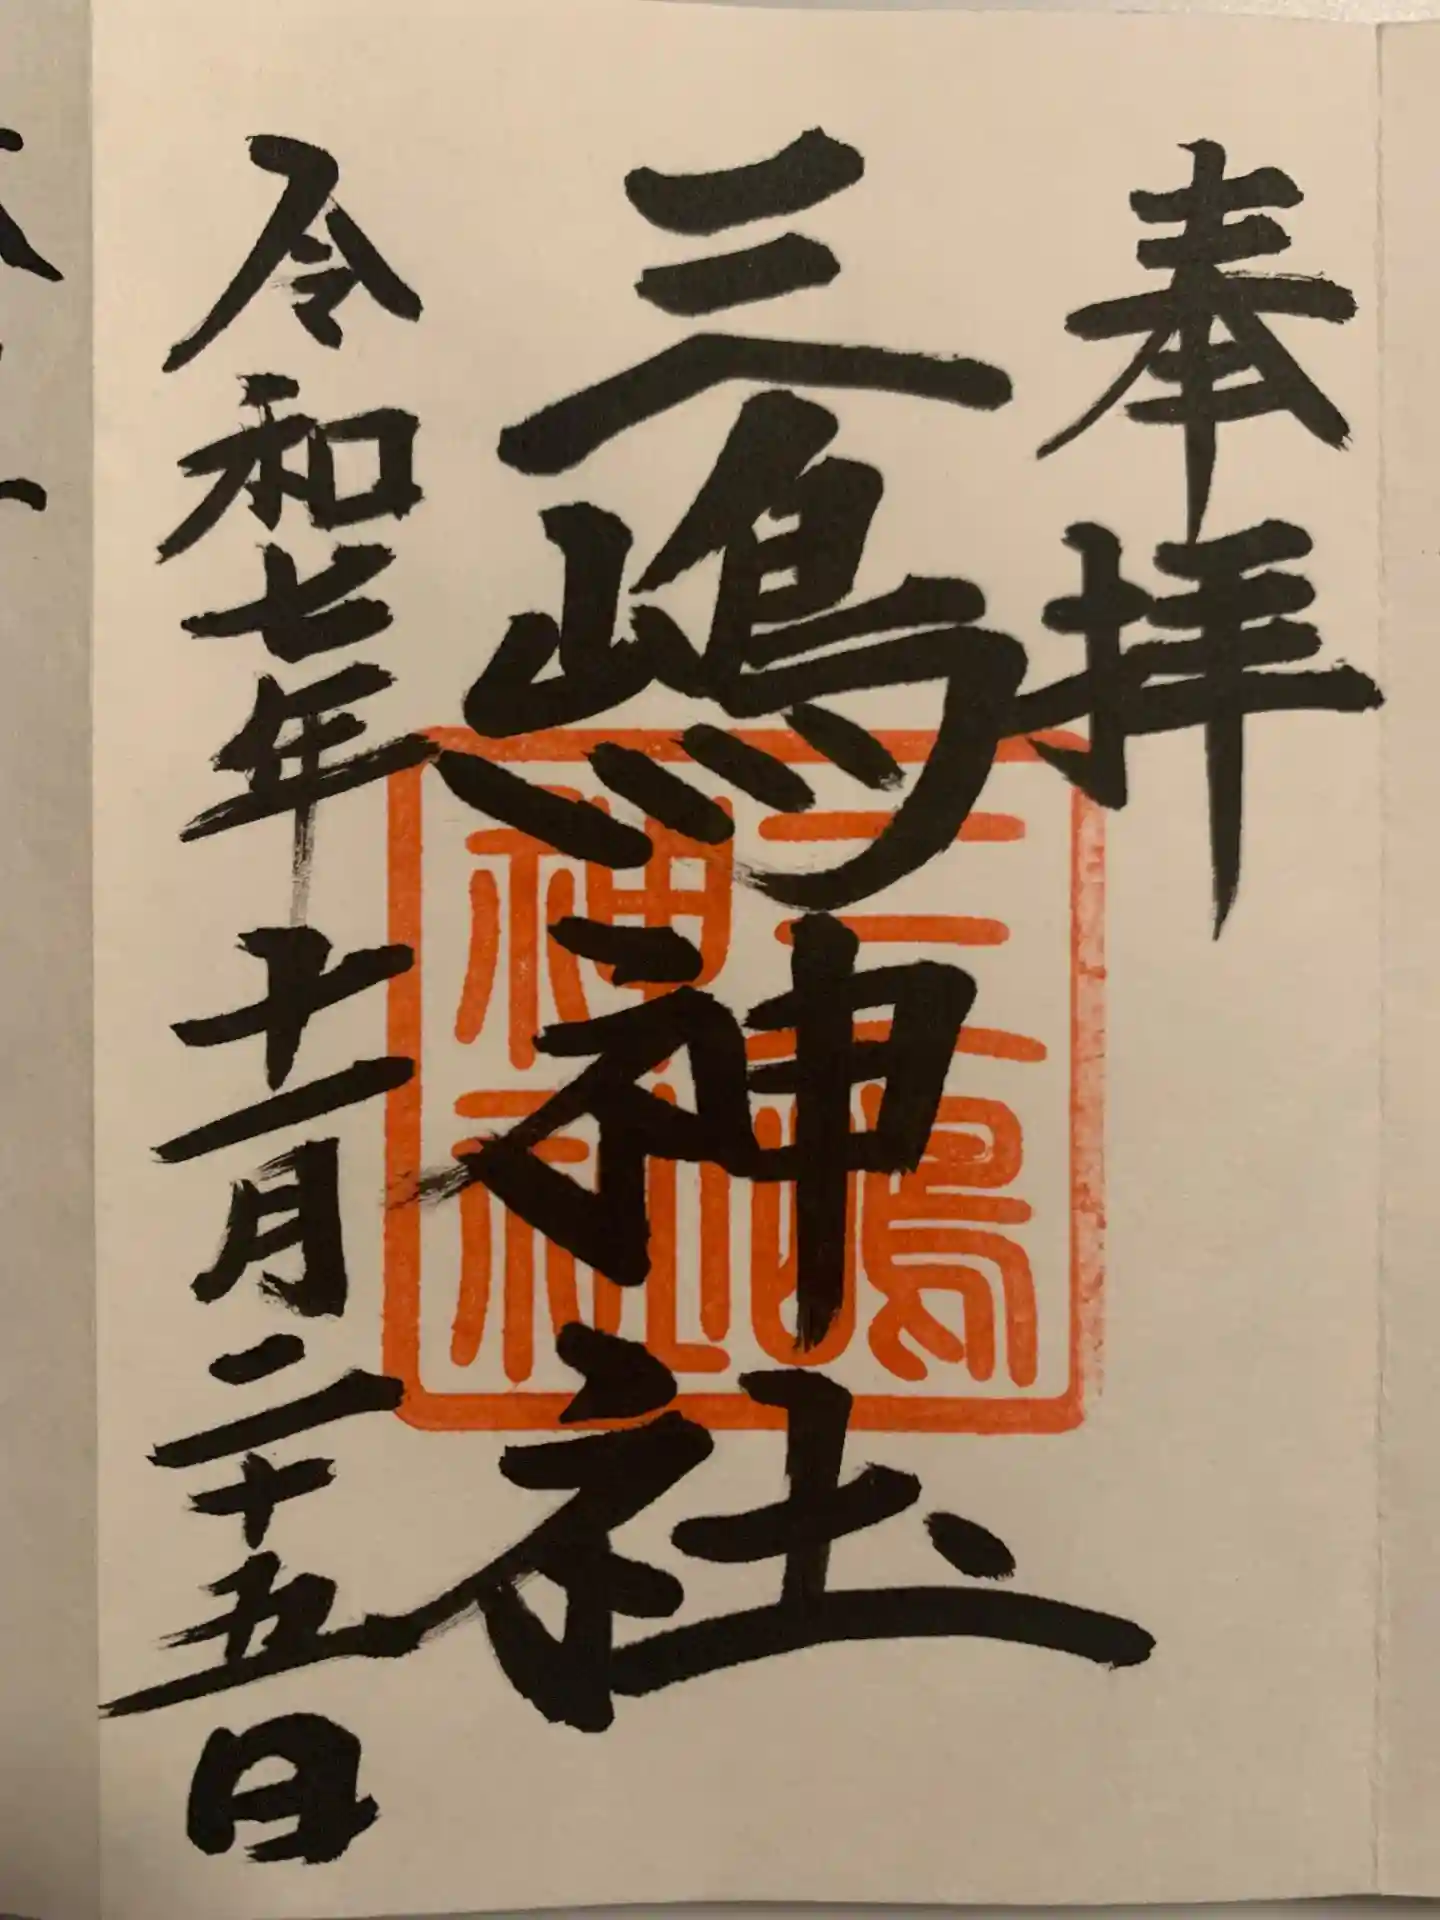 奉拝
三嶋神社
三嶋神社
令和七年十一月二十五日